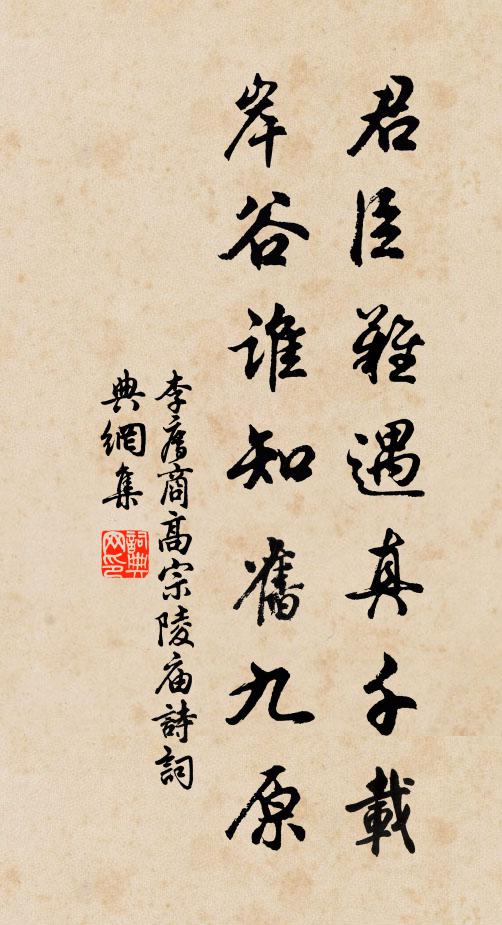 君臣難遇真千載
岸谷誰知舊九原
李廌商高宗陵庙詩詞
典網集
詞典
网印